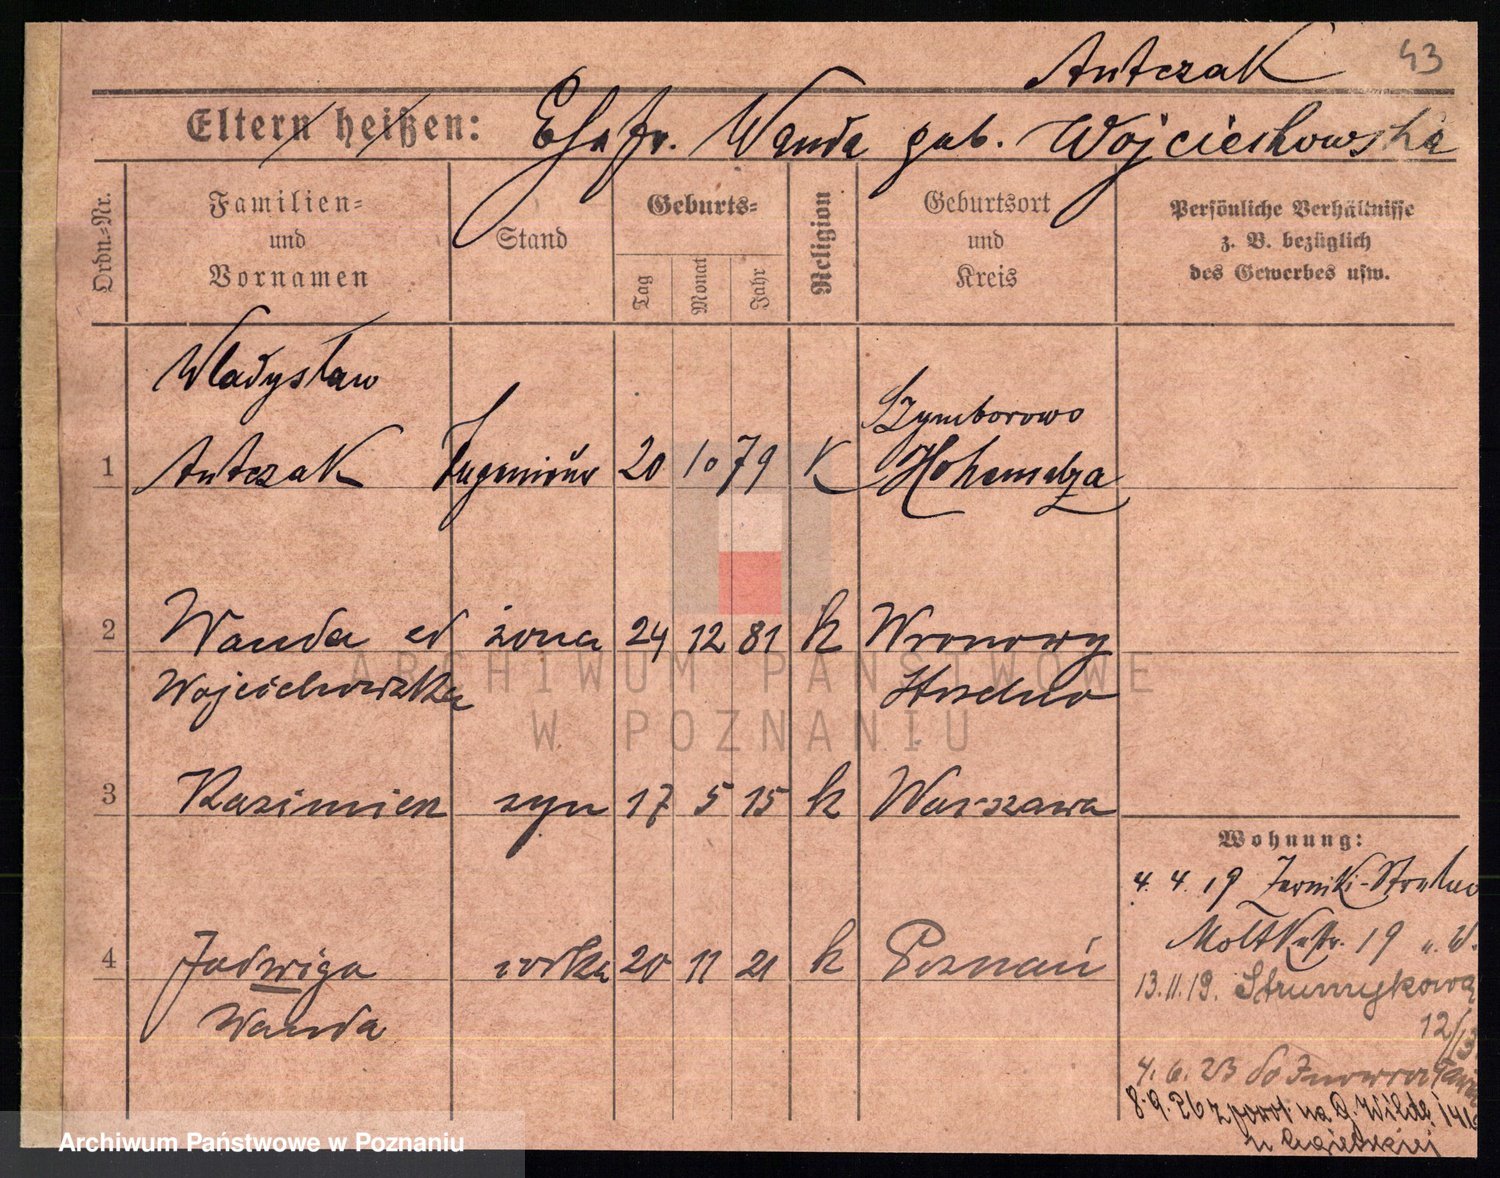 Antczak 43
Eltern heißen: Ehefr. Wanda geb. Wojciechowska
Ordn.-Nr.
Familien-
und
Vornamen
Stand
Geburts-
Tag
Monat
Jahr
Religion
Geburtsort
und
Kreis
Persönliche Verhältnisse
z. B. bezüglich
des Gewerbes usw.
Władysław
Szymborowo
1 Antczak Ingenieur 20 10 79 K Hohensalza
2 Wanda żona 24 12 81 k Wronowy
Wojciechowska Strzelno
3 Kazimierz syn 17 5 15 k Warszawa
Wohnung:
4. 4. 19 Żerniki-
Moltkestr. 19
4 Jadwiga córka 20 11 21 k Poznań
Wanda
13.11.19. Strumykowa
12/13
4. 6. 23 do Inowrocławia
8.9.26 z powr na G. Wildę
ARCHIWUM PAŃSTWOWE
W POZNANIU
Archiwum Państwowe w Poznaniu